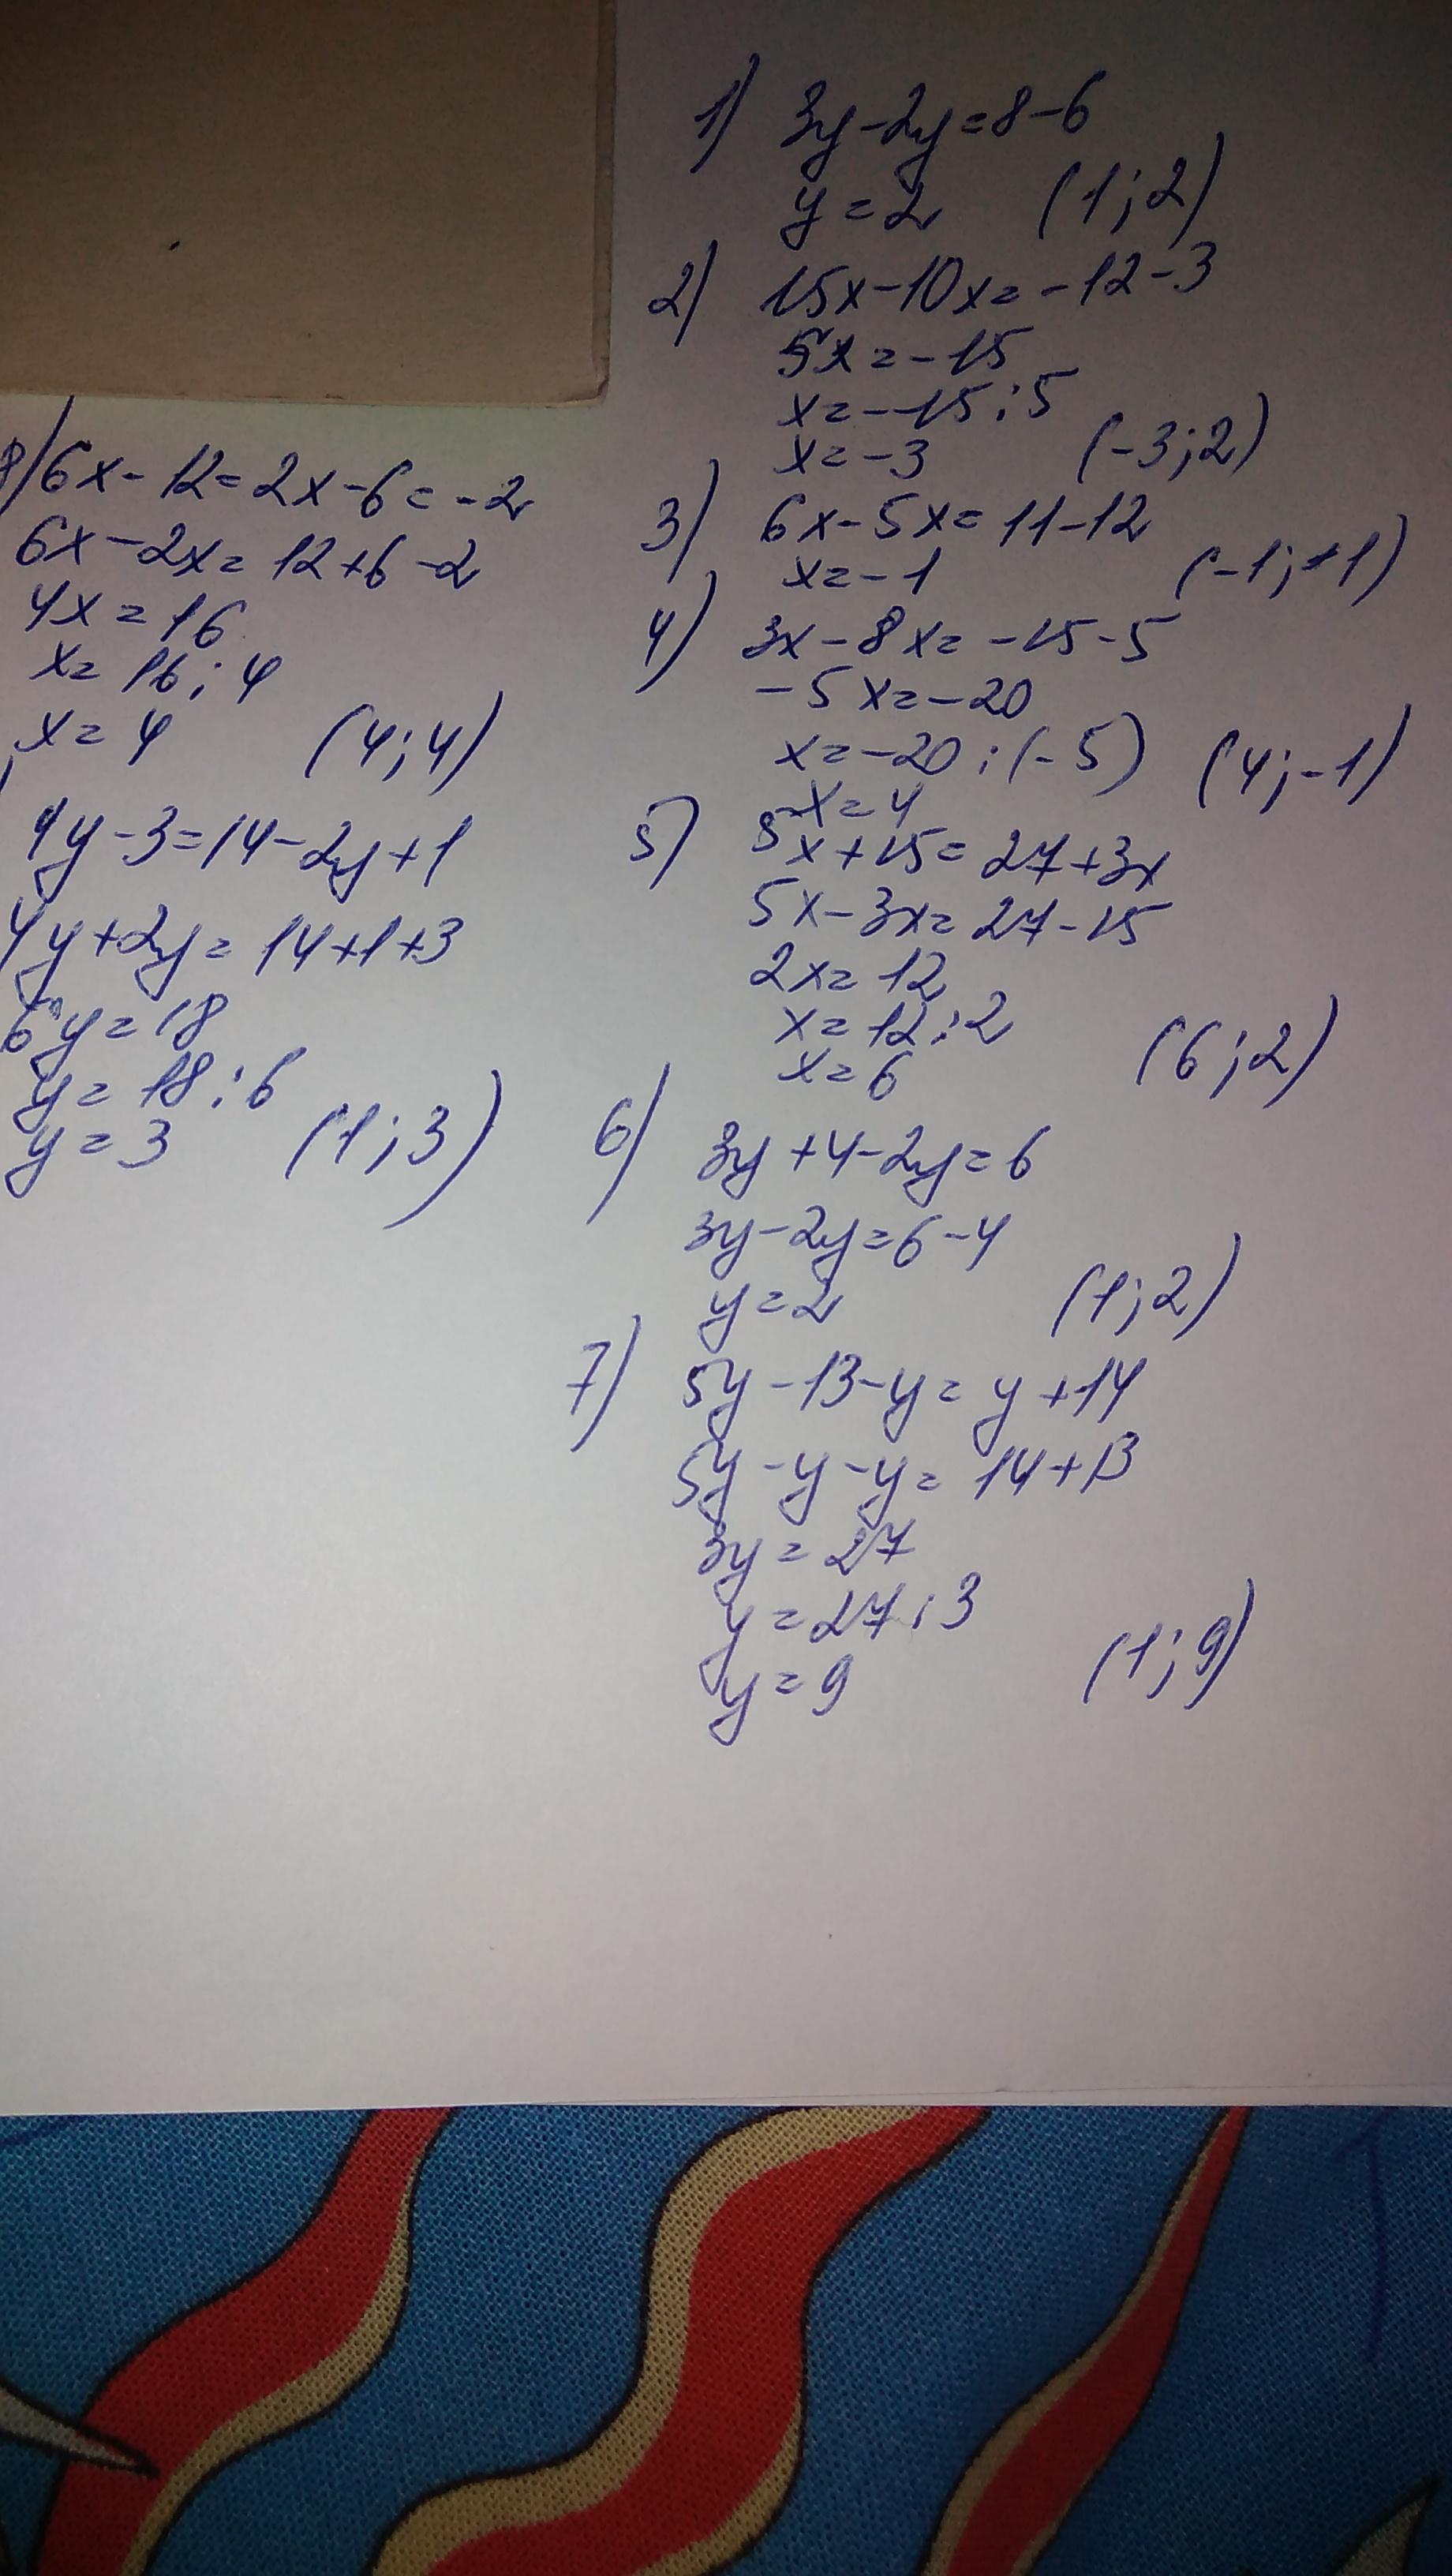 1) 3y-2y=8-6
y=2 (1;2)
2) 15x-10x=-12-3
5x=-15
x=-15:5
x=-3 (-3;2)
3) 6x-5x=11-12
x=-1 (-1;+1)
4) 3x-8x=-15-5
-5x=-20
x=-20:(-5) (4;-1)
x=4
5) 5x+15=27+3x
5x-3x=27-15
2x=12
x=12:2
x=6 (6;2)
6) 3y+4-2y=6
3y-2y=6-4
y=2 (1;2)
7) 5y-13-y=y+14
5y-y-y=14+13
3y=27
y=27:3
y=9 (1;9)
8) 6x-12=2x-6=-2
6x-2x=12+6-2
4x=16
x=16:4
x=4 (4;4)
4y-3=14-2y+1
4y+2y=14+1+3
6y=18
y=18:6
y=3 (1;3)